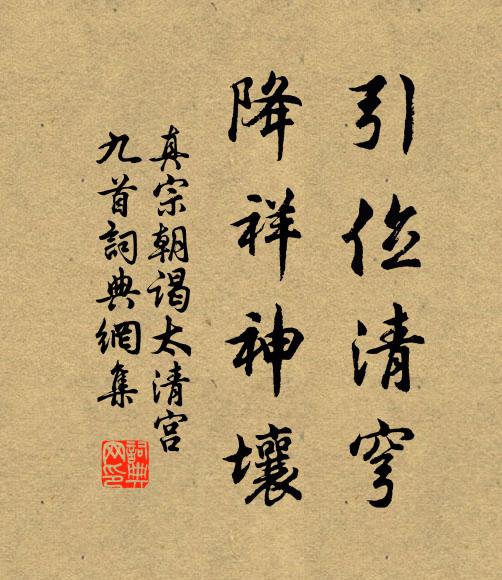 引位清穹
降祥神壤
真宗朝谒太清宫
九首詞典網集
詞典
网印